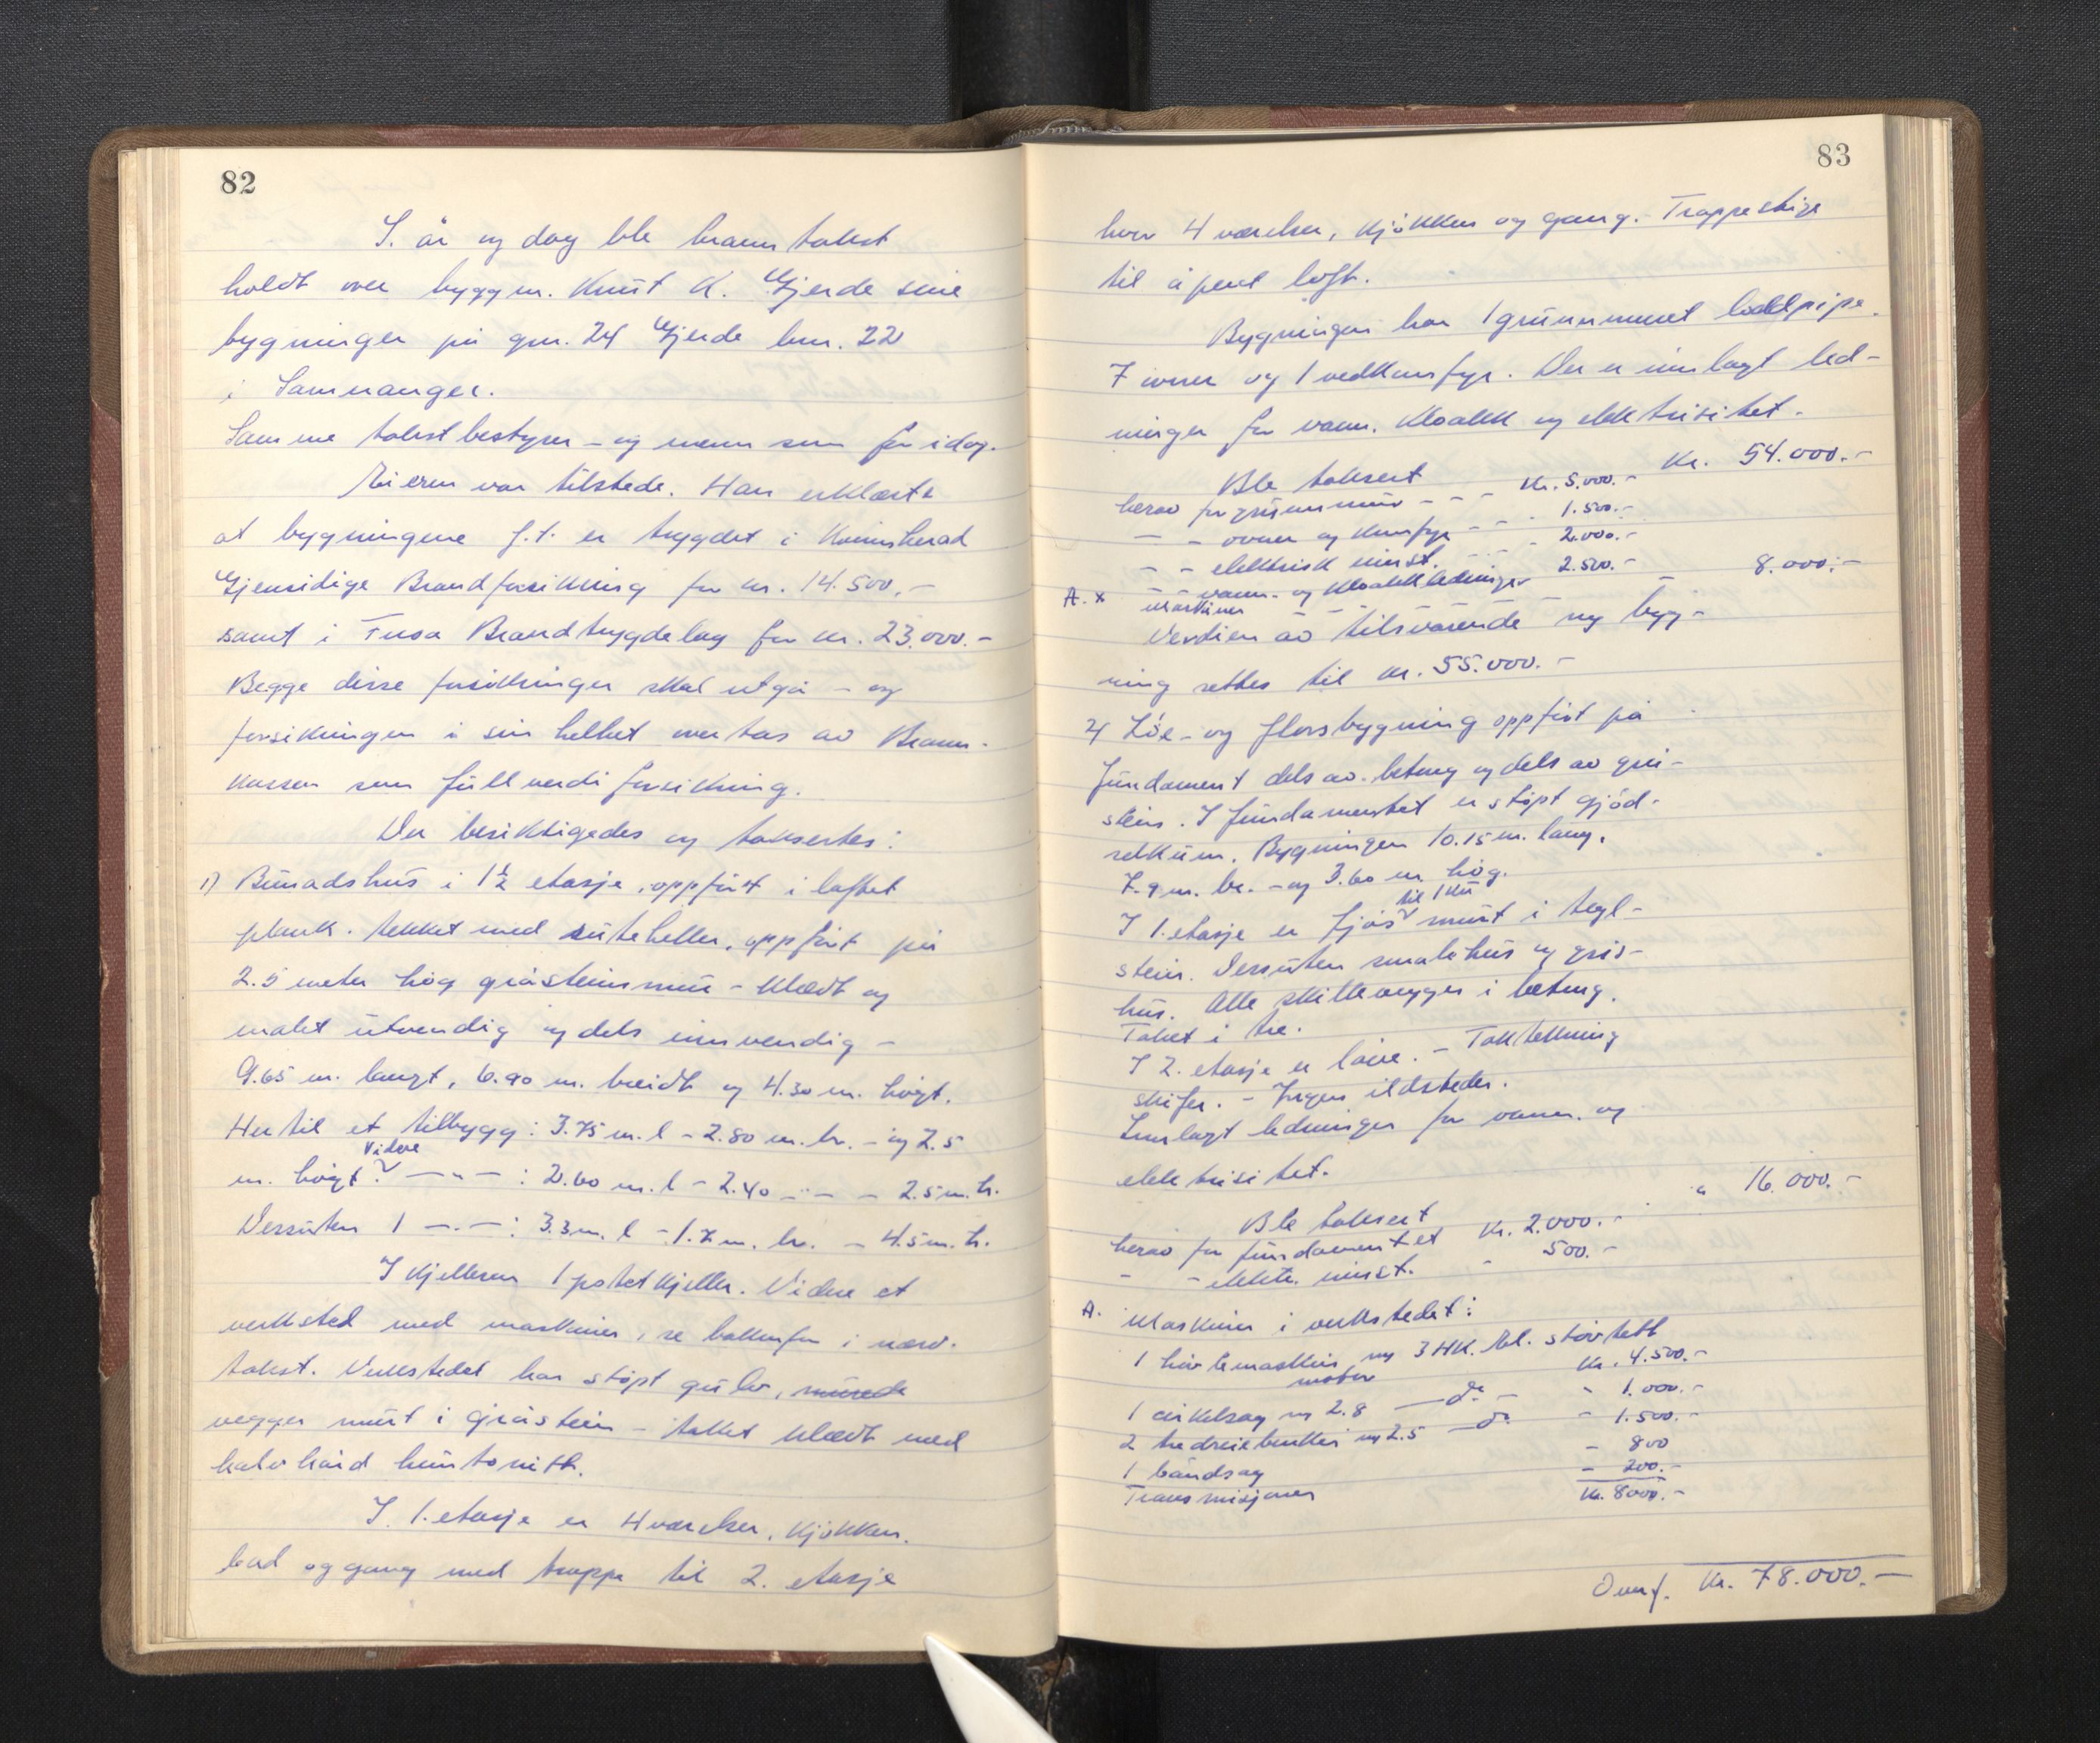 82
S. år og dag ble branntakst
holdt over byggm. Knut K. Gjerde sine
bygninger på gnr. 24 Gjerde bnr. 22
i Samnanger.
Samme takstbestyrer - og menn som før idag.
Eieren var tilstede. Han erklærte
at bygningene f.t. er trygdet i Kvinnherad
Gjensidige Brandforsikring for kr. 14.500.-
samt i Fusa Brandtrygdelag for kr. 23.000.-
Begge disse forsikringer skal utgå - og
forsikringen i sin helhet overtas av Brann-
kassen som fullverdiforsikring.
Der besiktigedes og taksertes:
1) Bunadshus i 1½ etasje, oppført i laftet
plank. tekket med suteheller, oppført på
2.5 meter høg gråsteinsmur - klædt og
malet utvendig og dels innvendig -
9.65 m. langt, 6.90 m. breidt og 4.30 m. høgt.
Hertil et tilbygg: 3.75 m. l - 2.80 m. br. - og 2.5
Videre
m. høgt. — " — : 2.60 m. l - 2.40 - " - - 2.5 m. h.
Dessuten 1 — " — : 3.3 m. l - 1.7 m. br. - 4.5 m. h.
I kjelleren 1 potetkjeller. Videre et
verksted med maskiner, se bakenfor i nærv.
takst. Verkstedet har støpt gulv, murede
vegger murt i gråstein - taket klædt med
halvhård huntonitt.
I 1. etasje er 4 værelser, kjøkken,
bad og gang med trappe til 2. etasje
83
hvor 4 værelser, kjøkken og gang. - Trappestige
til åpent loft.
Bygningen har 1 grunnmuret loddpipe.
7 ovner og 1 vedkomfyr. Der er innlagt led-
ninger for vann, kloakk og elektrisitet.
Ble taksert Kr. 54.000.-
herav for grunnmur - - - Kr. 5.000.-
- - ovner og komfyr - - - 1.500.-
- - elektrisk innst. - - - 2.000.-
- - vann- og kloakkledninger 2.500.-
A. x Maskiner - 8.000.-
Verdien av tilsvarende ny byg-
ning settes til kr. 55.000.-
2) Løe- og florsbygning oppført på
fundament dels av betong og dels av grå-
stein. I fundamentet er støpt gjød-
selkum. Bygningen 10.15 m. lang,
7.9 m. br. - og 3.60 m. høg.
til 1 ku
I 1. etasje er fjøs murt i tegl-
stein. Dessuten smalehus og gris-
hus. Alle skillevegger i betong.
Taket i tre.
I 2. etasje er løive. - Taktekning
skifer. - Ingen ildsteder.
Innlagt ledninger for vann og
elektrisitet.
Ble taksert " 16.000.-
herav for fundamentet Kr. 2.000.-
- - elektr. innst. - 500.-
A. Maskiner i verkstedet:
1 høvlemaskin m/ 3 HK. el. støvtett
motor Kr. 4.500.-
1 sirkelsag m/ 2.8 — do - - 1.000.-
2 tredreiebenker m/ 2.5 — do - 1.500.-
1 båndsag - 800
Transmisjoner - 200.-
Kr. 8000.-
Overf. Kr. 78.000.-